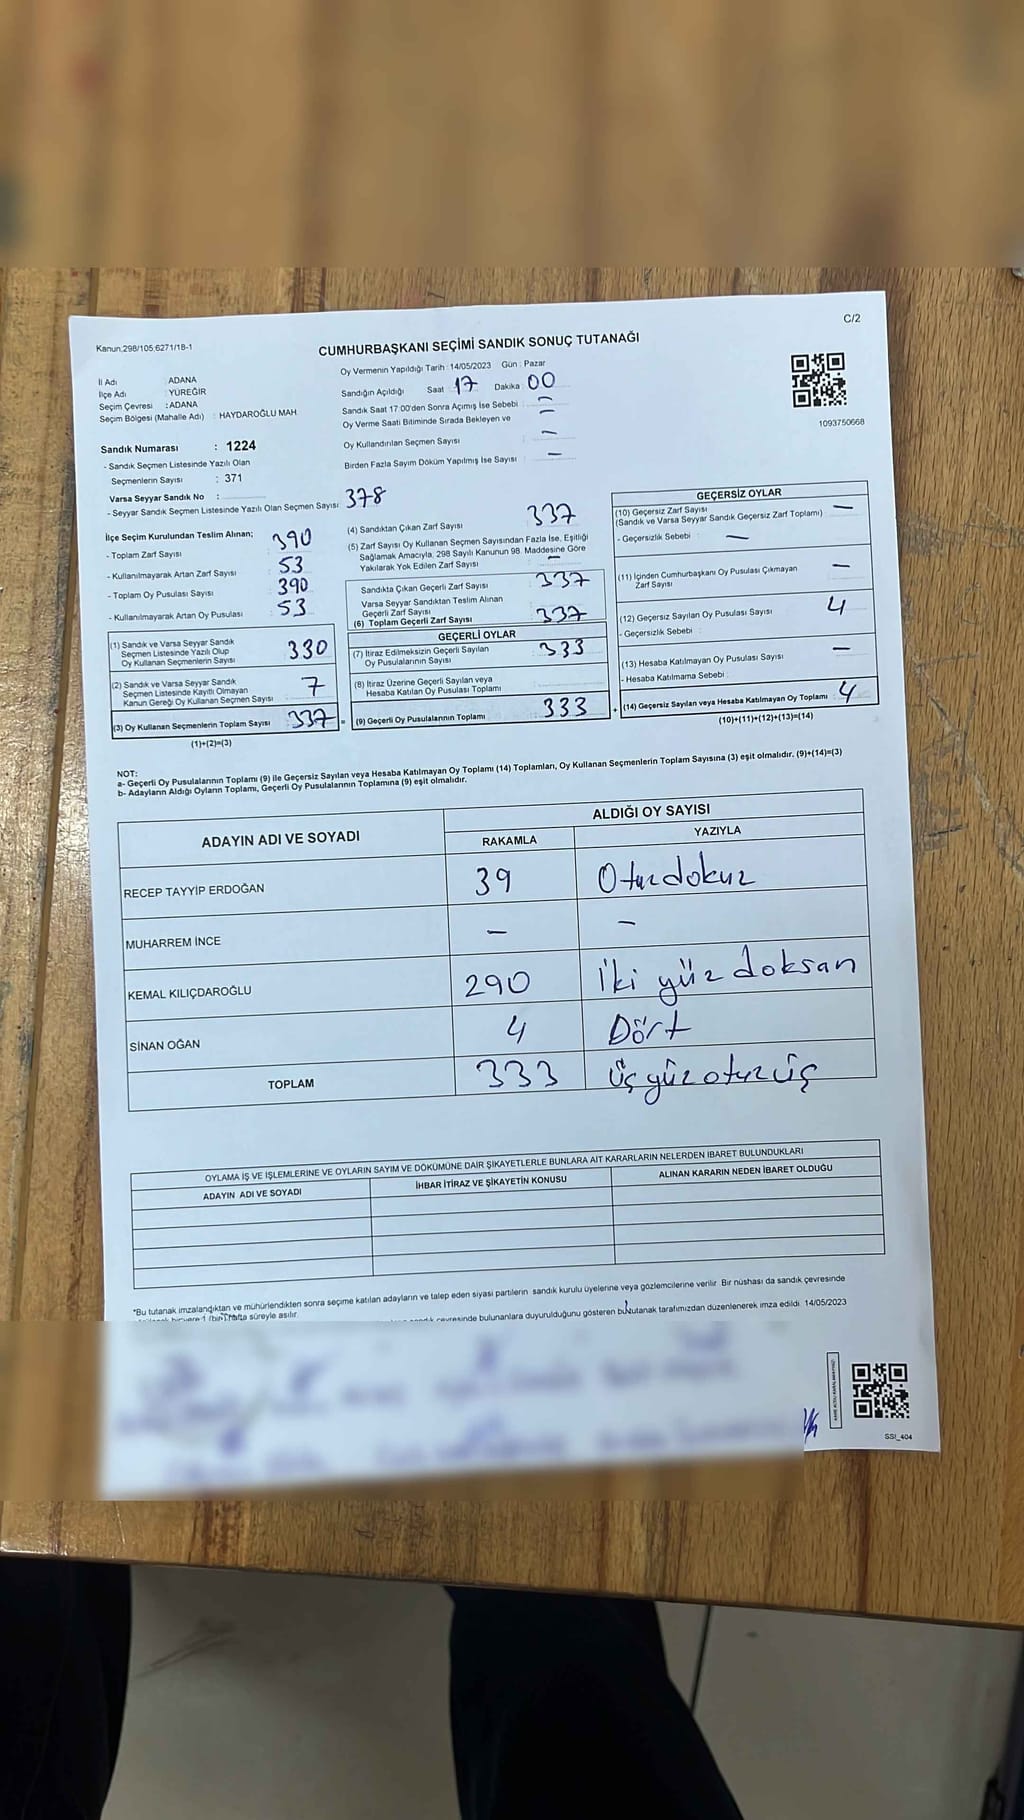 C/2
Kanun.298/105,6271/18-1
CUMHURBAŞKANI SEÇİMİ SANDIK SONUÇ TUTANAĞI
İl Adı : ADANA
İlçe Adı : YÜREĞİR
Seçim Çevresi : ADANA
Seçim Bölgesi (Mahalle Adı) : HAYDAROĞLU MAH
Sandık Numarası : 1224
- Sandık Seçmen Listesinde Yazılı Olan
Seçmenlerin Sayısı : 371
Varsa Seyyar Sandık No :
- Seyyar Sandık Seçmen Listesinde Yazılı Olan Seçmen Sayısı 378
Oy Vermenin Yapıldığı Tarih : 14/05/2023 Gün : Pazar
Sandığın Açıldığı Saat 17 Dakika 00
Sandık Saat 17:00'den Sonra Açımış İse Sebebi : -
Oy Verme Saati Bitiminde Sırada Bekleyen ve -
Oy Kullandırılan Seçmen Sayısı : -
Birden Fazla Sayım Döküm Yapılmış İse Sayısı : -
1093750668
İlçe Seçim Kurulundan Teslim Alınan;
- Toplam Zarf Sayısı : 390
- Kullanılmayarak Artan Zarf Sayısı : 53
- Toplam Oy Pusulası Sayısı : 390
- Kullanılmayarak Artan Oy Pusulası : 53
(1) Sandık ve Varsa Seyyar Sandık
Seçmen Listesinde Yazılı Olup
Oy Kullanan Seçmenlerin Sayısı : 330
(2) Sandık ve Varsa Seyyar Sandık
Seçmen Listesinde Kayıtlı Olmayan
Kanun Gereği Oy Kullanan Seçmen Sayısı : 7
(3) Oy Kullanan Seçmenlerin Toplam Sayısı : 337 =
(1)+(2)=(3)
(4) Sandıktan Çıkan Zarf Sayısı : 337
(5) Zarf Sayısı Oy Kullanan Seçmen Sayısından Fazla İse, Eşitliği
Sağlamak Amacıyla, 298 Sayılı Kanunun 98. Maddesine Göre
Yakılarak Yok Edilen Zarf Sayısı : -
Sandıkta Çıkan Geçerli Zarf Sayısı : 337
Varsa Seyyar Sandıktan Teslim Alınan
Geçerli Zarf Sayısı :
(6) Toplam Geçerli Zarf Sayısı : 337
GEÇERLİ OYLAR
(7) İtiraz Edilmeksizin Geçerli Sayılan
Oy Pusulalarının Sayısı : 333
(8) İtiraz Üzerine Geçerli Sayılan veya
Hesaba Katılan Oy Pusulası Toplamı :
(9) Geçerli Oy Pusulalarının Toplamı : 333 +
GEÇERSİZ OYLAR
(10) Geçersiz Zarf Sayısı : -
(Sandık ve Varsa Seyyar Sandık Geçersiz Zarf Toplamı)
- Geçersizlik Sebebi : -
(11) İçinden Cumhurbaşkanı Oy Pusulası Çıkmayan
Zarf Sayısı : -
(12) Geçersiz Sayılan Oy Pusulası Sayısı : 4
- Geçersizlik Sebebi :
(13) Hesaba Katılmayan Oy Pusulası Sayısı : -
- Hesaba Katılmama Sebebi :
(14) Geçersiz Sayılan veya Hesaba Katılmayan Oy Toplamı : 4
(10)+(11)+(12)+(13)=(14)
NOT:
a- Geçerli Oy Pusulalarının Toplamı (9) ile Geçersiz Sayılan veya Hesaba Katılmayan Oy Toplamı (14) Toplamları, Oy Kullanan Seçmenlerin Toplam Sayısına (3) eşit olmalıdır. (9)+(14)=(3)
b- Adayların Aldığı Oyların Toplamı, Geçerli Oy Pusulalarının Toplamına (9) eşit olmalıdır.
ADAYIN ADI VE SOYADI
ALDIĞI OY SAYISI
RAKAMLA YAZIYLA
RECEP TAYYİP ERDOĞAN 39 Otuzdokuz
MUHARREM İNCE - -
KEMAL KILIÇDAROĞLU 290 İki yüz doksan
SİNAN OĞAN 4 Dört
TOPLAM 333 üç yüz otuz üç
OYLAMA İŞ VE İŞLEMLERİNE VE OYLARIN SAYIM VE DÖKÜMÜNE DAİR ŞİKAYETLERLE BUNLARA AİT KARARLARIN NELERDEN İBARET BULUNDUKLARI
ADAYIN ADI VE SOYADI İHBAR İTİRAZ VE ŞİKAYETİN KONUSU ALINAN KARARIN NEDEN İBARET OLDUĞU
*Bu tutanak imzalandıktan ve mühürlendikten sonra seçime katılan adayların ve talep eden siyasi partilerin sandık kurulu üyelerine veya gözlemcilerine verilir. Bir nüshası da sandık çevresinde
hafta süreyle asılır.
çevresinde bulunanlara duyurulduğunu gösteren bu tutanak tarafımızdan düzenlenerek imza edildi. 14/05/2023
SSI_404